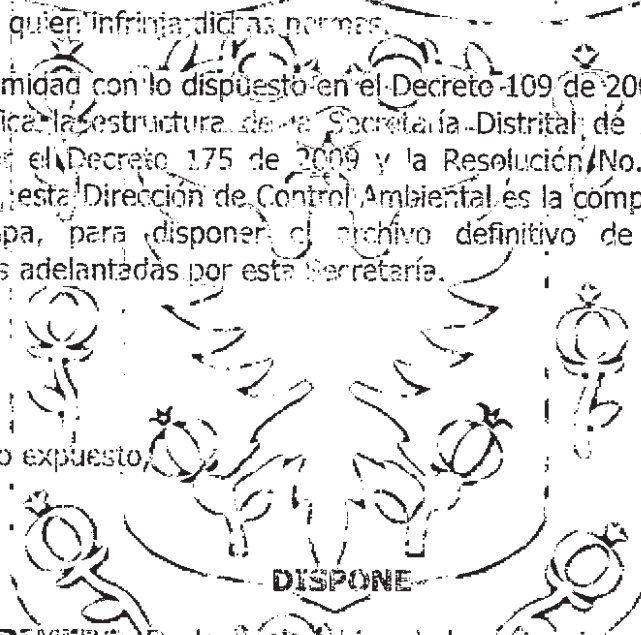 quien infrinja dichas normas.
midad con lo dispuesto en el Decreto 109 de 200
ica la estructura de la Secretaría Distrital de
el Decreto 175 de 2009 y la Resolución No.
esta Dirección de Control Ambiental es la comp
pa, para disponer el archivo definitivo de
s adelantadas por esta Secretaría.
o expuesto,
DISPONE